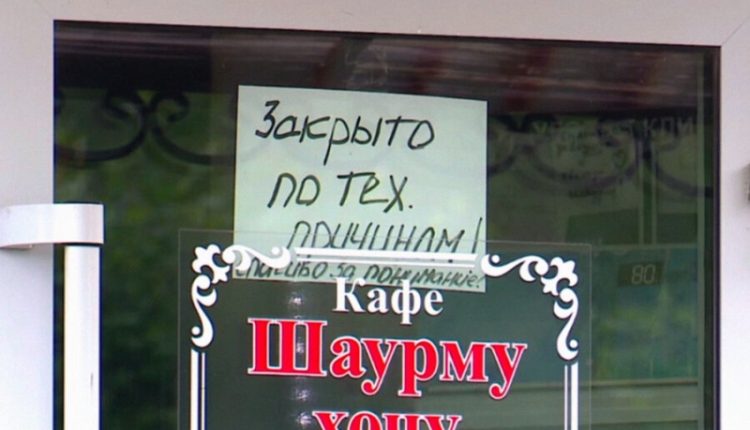 Закрыто
по тех.
причинам!
спасибо за понимание!
Кафе
Шаурму
хочу
80